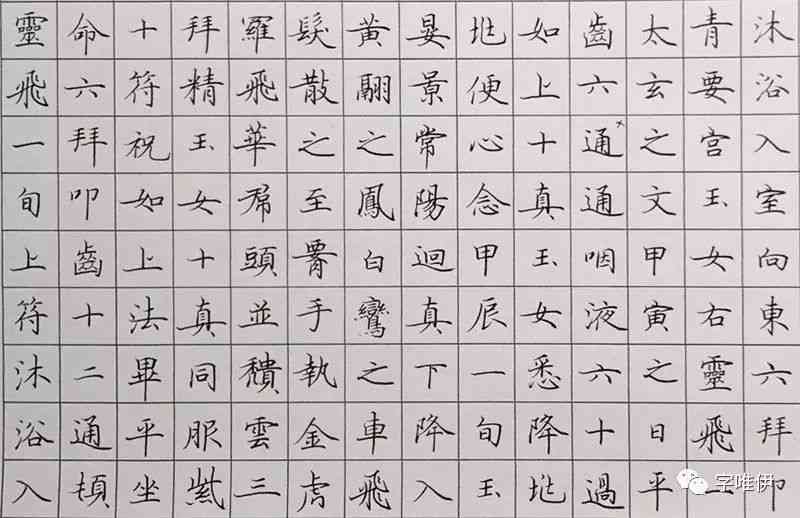 沐浴入室向東六拜叩
青要宫玉女右靈飛一
太玄之文甲寅之日平
齒六通通咽液六十過
如上十真玉女悉降兆
兆便心念甲辰一旬玉
晏景常陽迴真下降入
黃翮之鳳白鸞之車飛
髮散之至腰手執金虎
羅飛華帬頭並穨雲三
拜精玉女十真同服紫
十符祝如上法畢平坐
命六拜叩齒十二通頓
靈飛一旬上符沐浴入
字唯伊